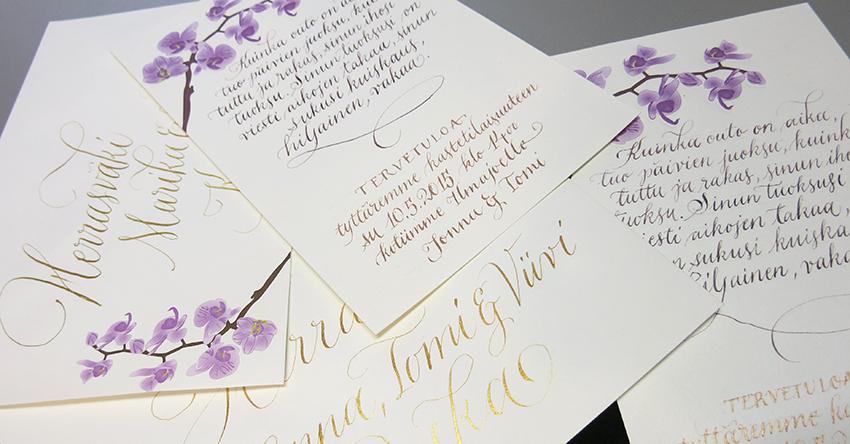 Herrasväki
Marika &
Kuinka outo on aika,
tuo päivien juoksu, kuin
tuttu ja rakas, sinun ihosi
tuoksu. Sinun tuoksusi on
viesti aikojen takaa, sinun
sukusi kuiskaus,
hiljainen, vakaa.
TERVETULOA
tyttäremme kastetilaisuuteen
su 10.5.2015 klo 13:00
kotiimme Ilmajoelle
Jonna & Tomi
Jonna, Tomi & Viivi
Kuinka outo on aika,
tuo päivien juoksu, kuink
tuttu ja rakas, sinun iho
tuoksu. Sinun tuoksusi
viesti aikojen takaa,
sukusi kuiska
hiljainen, vaka
TERVETULOA
tyttäremme ka